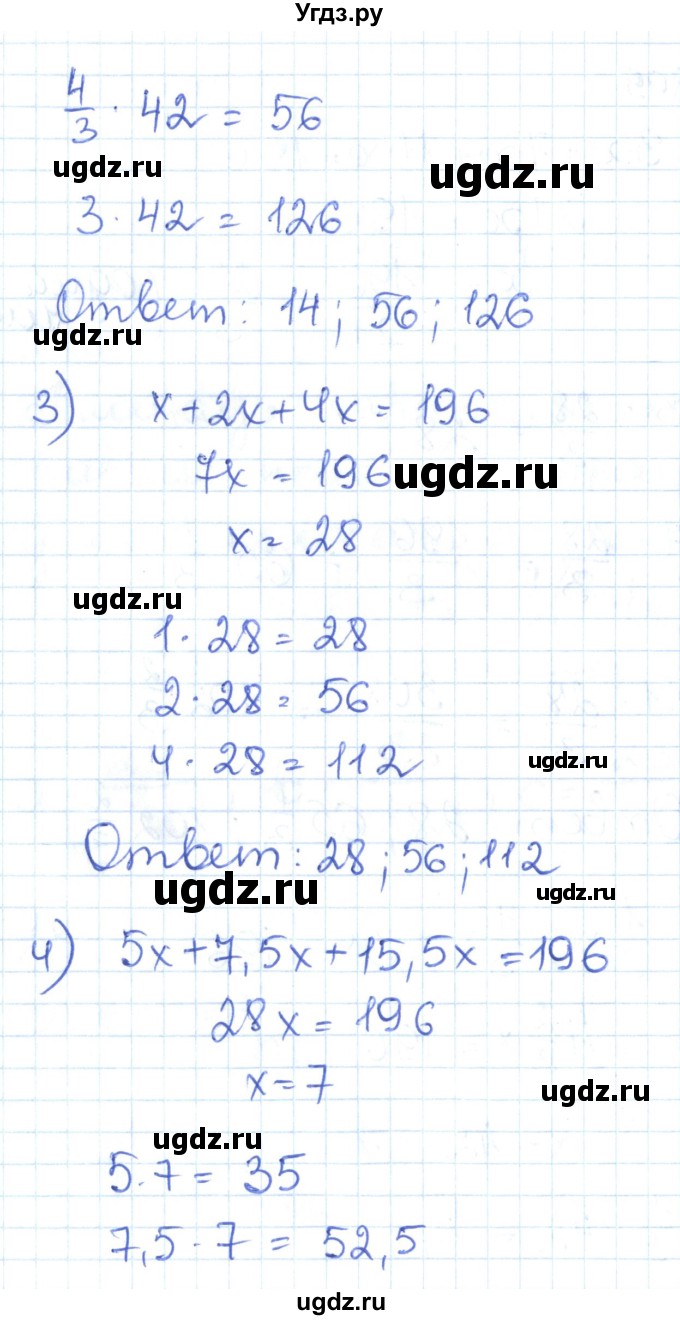 Угдз.ру
4/3 · 42 = 56
ugdz.ru
ugdz.ru
3 · 42 = 126
Ответ: 14; 56; 126
ugdz.ru
3) x+2x+4x = 196
7x = 196
ugdz.ru
x = 28
ugdz.ru
1 · 28 = 28
2 · 28 = 56
4 · 28 = 112
ugdz.ru
Ответ: 28; 56; 112
ugdz.ru
ugdz.ru
4) 5x+7,5x+15,5x = 196
28x = 196
x = 7
ugdz.ru
ugdz.ru
5 · 7 = 35
7,5 · 7 = 52,5
ugdz.ru